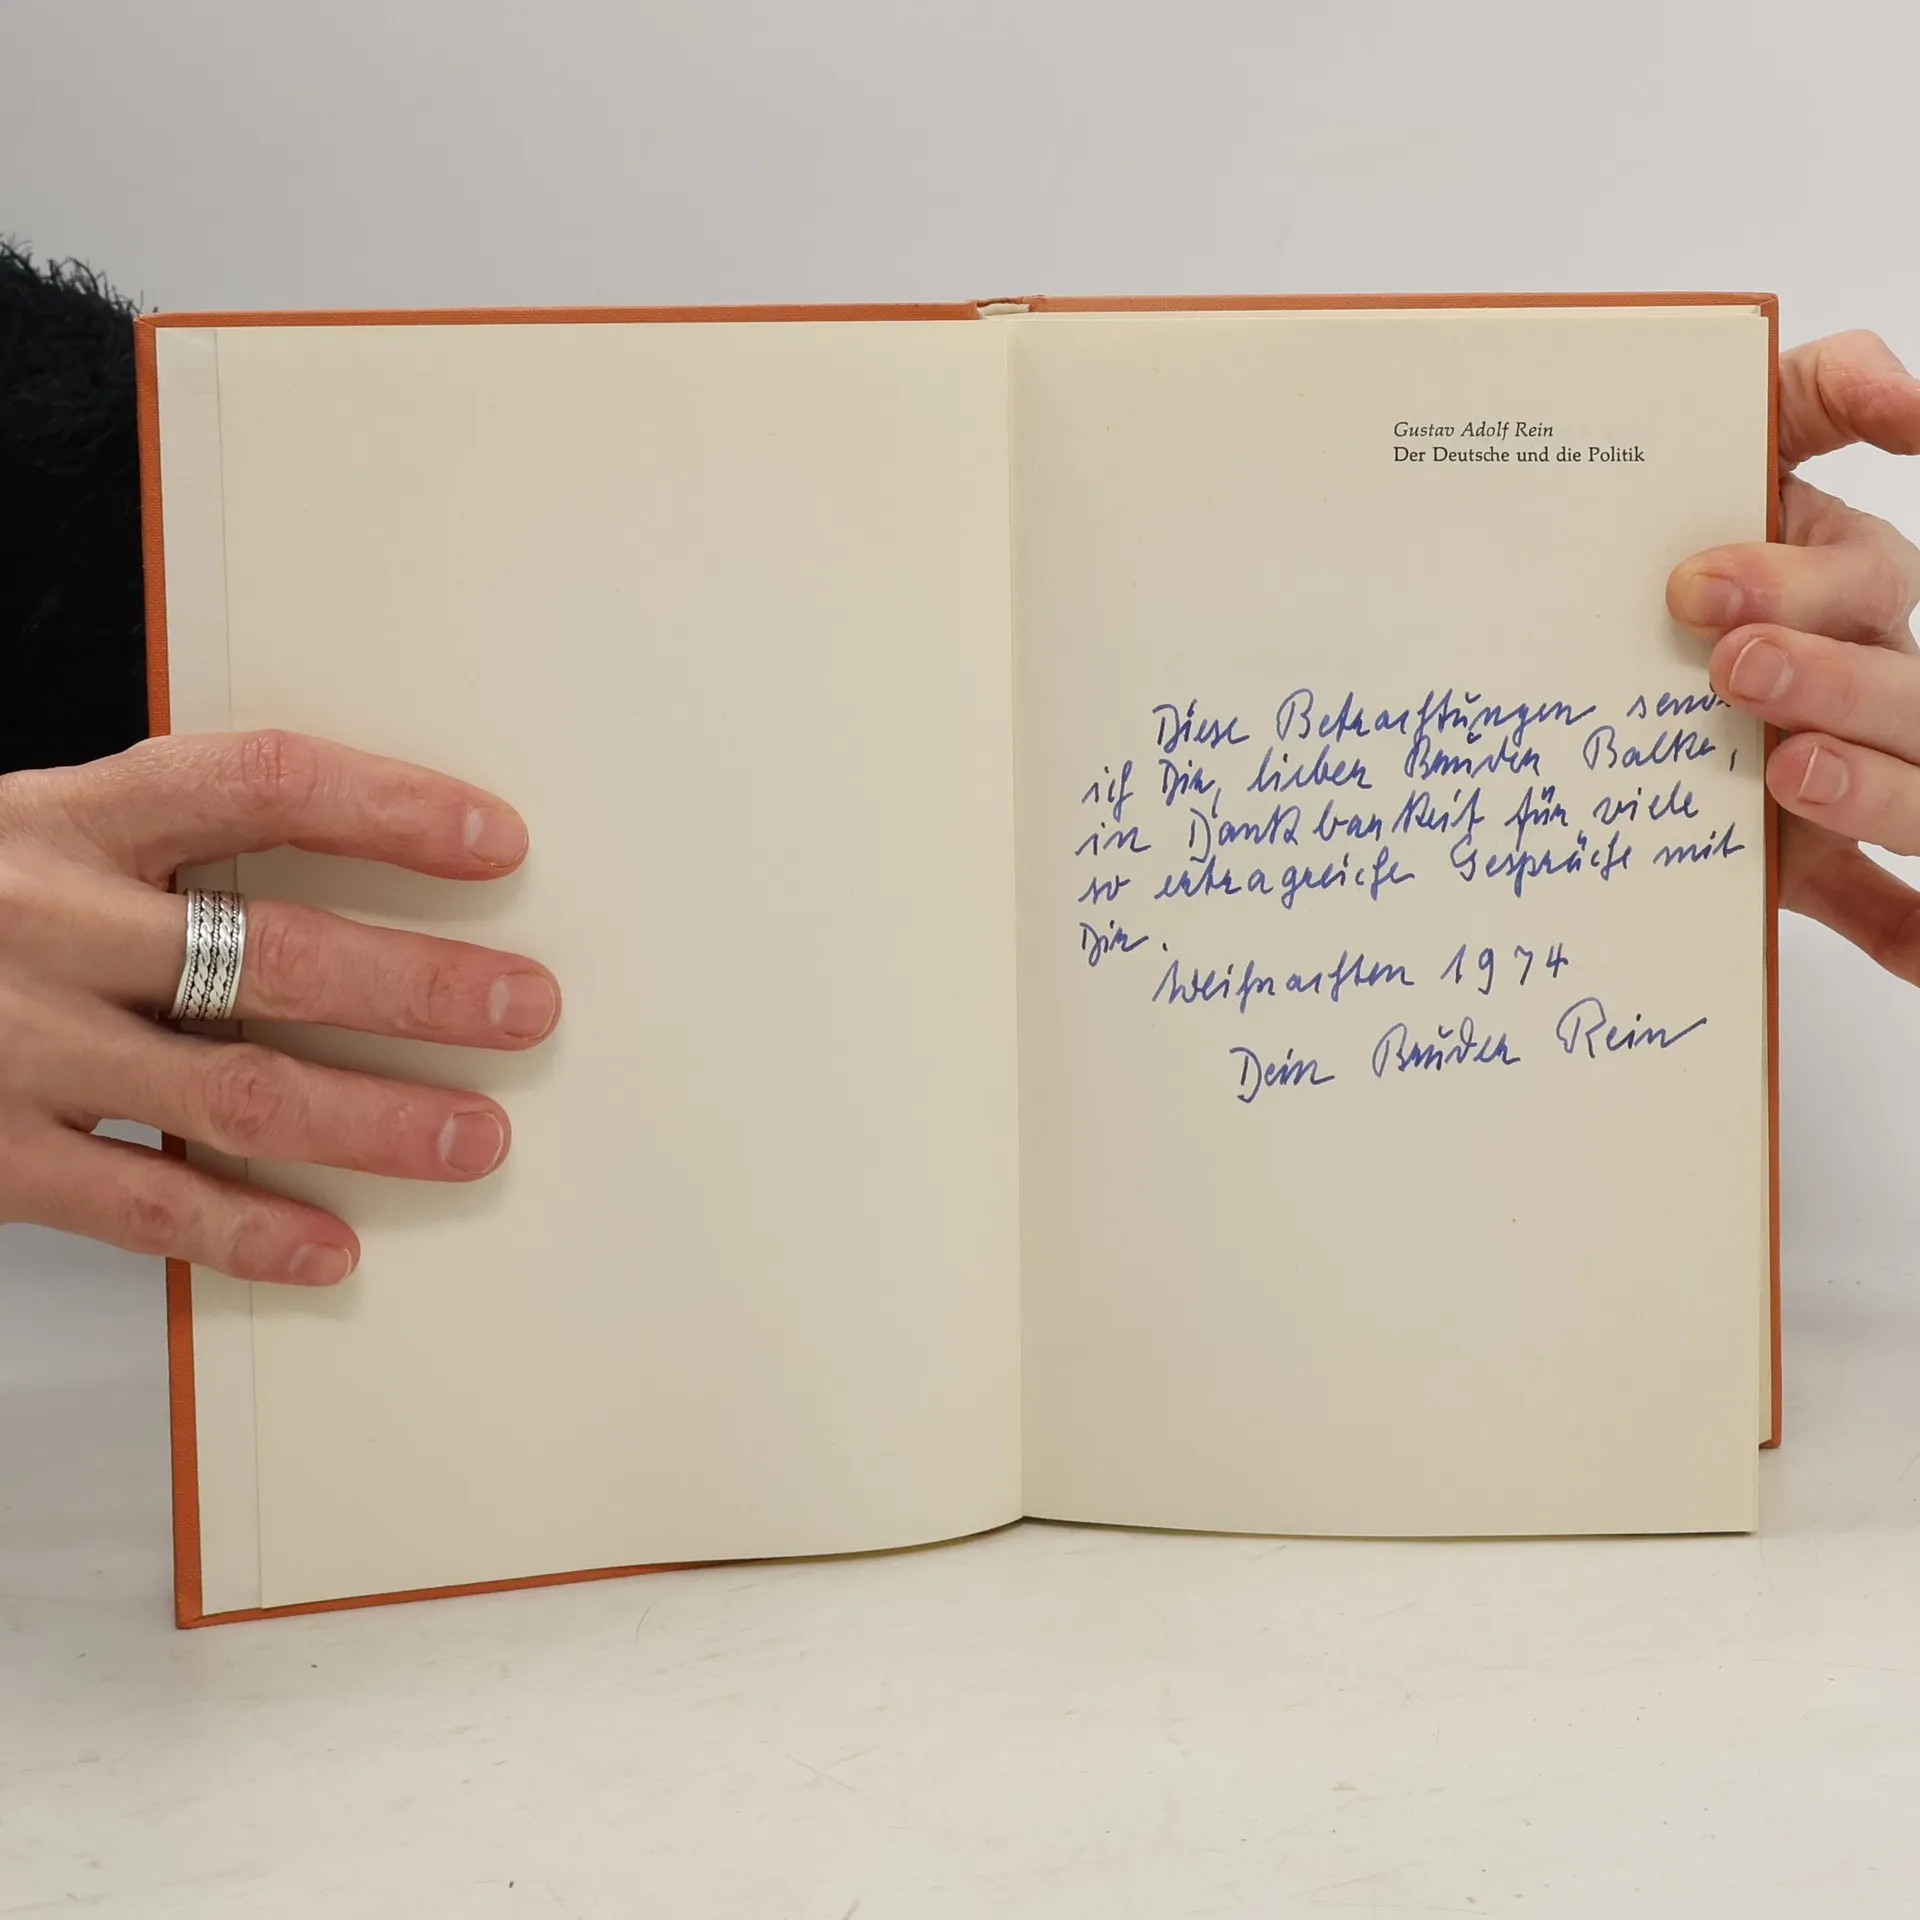 Gustav Adolf Rein
Der Deutsche und die Politik
Diese Betrachtungen
ich Dir, lieber Bruder Balke,
in Dankbarkeit für viele
so ertragreiche Gespräche mit
Dir.
Weihnachten 1974
Dein Bruder Rein